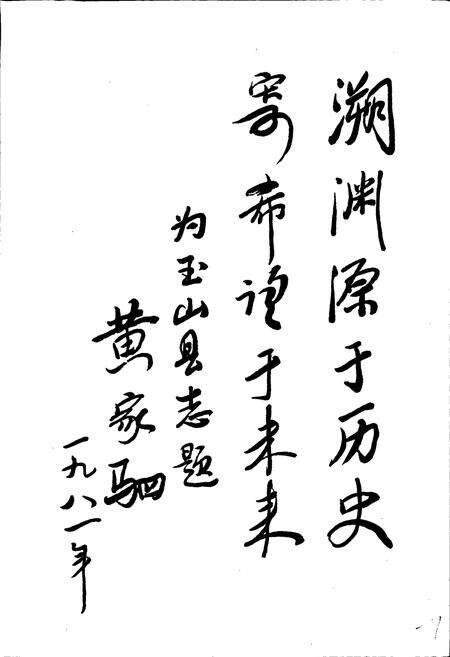 溯渊源于历史
寄希望于未来
为玉山县志题
黄家驷
一九八一年